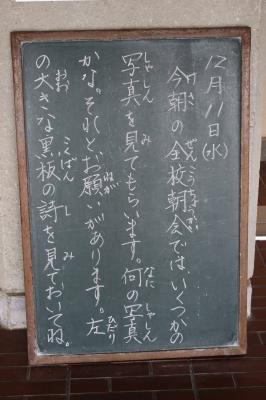 12月11日(水)
今朝の全校朝会では、いくつかの
写真を見てもらいます。何の写真
かな。それと、お願いがあります。左
の大きな黒板の詩を見ておいてね。